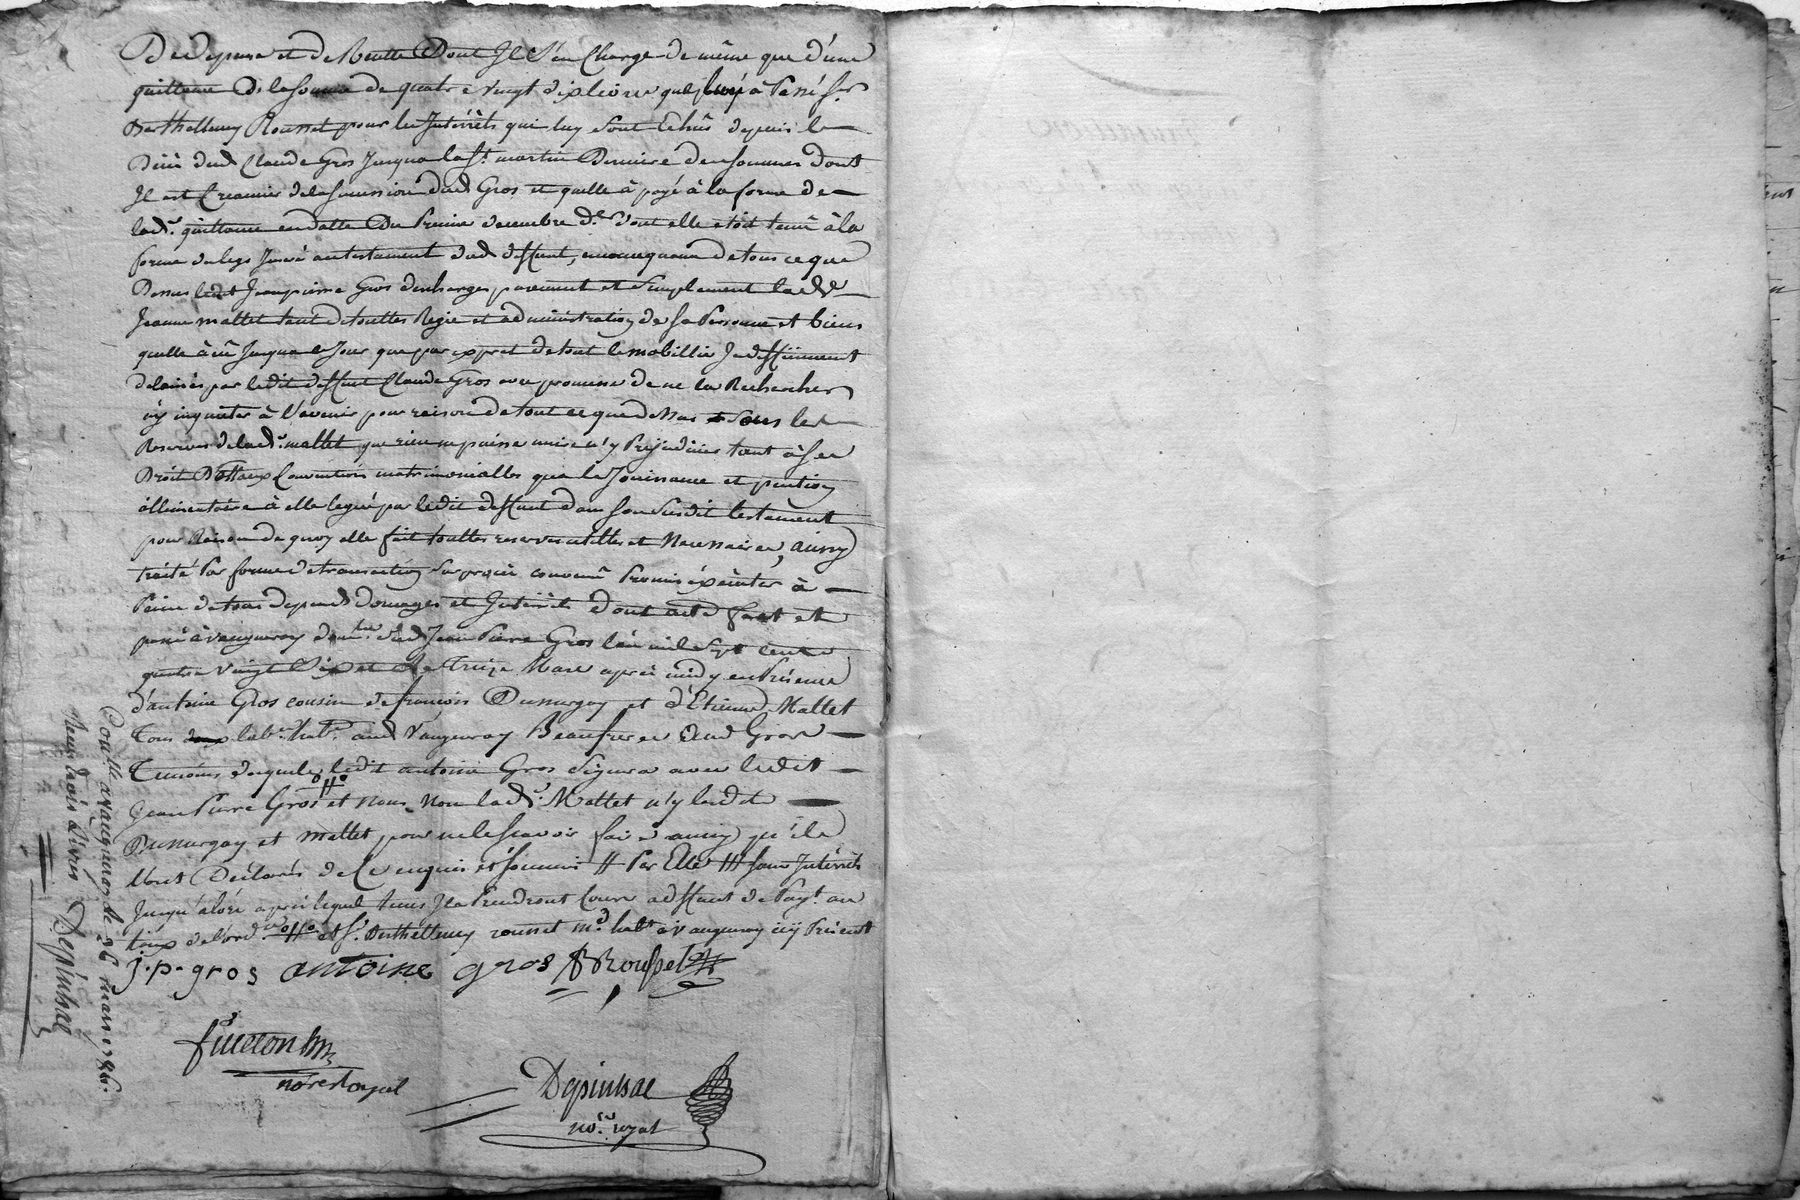 De depense et de Recette Dont Il S'en Charge de même que d'une
quittance De la somme de quatre vingt dix livre quel payé à
Berthellemy Rousset pour les Interêts qui luy sont Echûs depuis le
Deces dud Claude Gros Jusqua la St martin Derniere des sommes dont
Il est Creancier de la sucession dud Gros et qu'elle à payé à la forme de
lade quittance en datte Du Premier decembre dr dont elle etoit tenuë à la
forme du legs Inseré au testament dud deffunt, au moyen de tous ce que
Dessus ledt Jean pierre Gros decharge purement et Simplement lade
Jeanne mattet tant de touttes Regie et administration de sa Personne et biens
quelle à eû Jusqua ce Jour que par exprêt de tout le mobillier
delaissés par le dit deffunt Claude Gros avec promesse de ne la Rechercher
ny inquieter à l'avenir pour raison de tout ce que dessus Sous les
Reserves de lade mattet que rien ne puisse nuire n'y Prejudicier tant à ses
Droit Conventions matrimonialles que la Jouissance et pention
allimentaire à elle legué par le dit deffunt dans son susdit testament
pour Raison de quoy elle fait touttes reserves utilles et Necessaires, ainsy
traité Par forme de transaction Sur procès convenu Promis éxécuter à
Peine de tous depends domages et Interêts dont acte fait et
passé à vaugneray dud Jean Pierre Gros l'an mil Sept cents
quatre vingt Six et le Treize Mars après midy en Présence
d'antoine Gros cousin de françois Dumurgoy et d'Etienne Mattet
Tous labrs habts aud Vaugneray Beaufreres dud Gros
Temoins desquels ledit antoine Gros Signera avec ledit
Jean Pierre Gros et nous Non lade Mattet n'y lesdit
Dumurgoy et mattet pour ne le scavoir faire ainsy qu'ils
l'ont Déclarés de Ce enquis et sommés // Par Elle /// sans Interêts
Jusqu'alors après lequel tems Ils Prendront Cours a deffaut de Payt au
taux de l'ordce et Sr Berthellemy rousset md habt à vaugneray icy Présent
j.p. gros antoine gros B Rousset
nore Royal
Depinhac
nore royal
Controllé a vaugneray le 26 mars 1786.
Reçu Depinhac